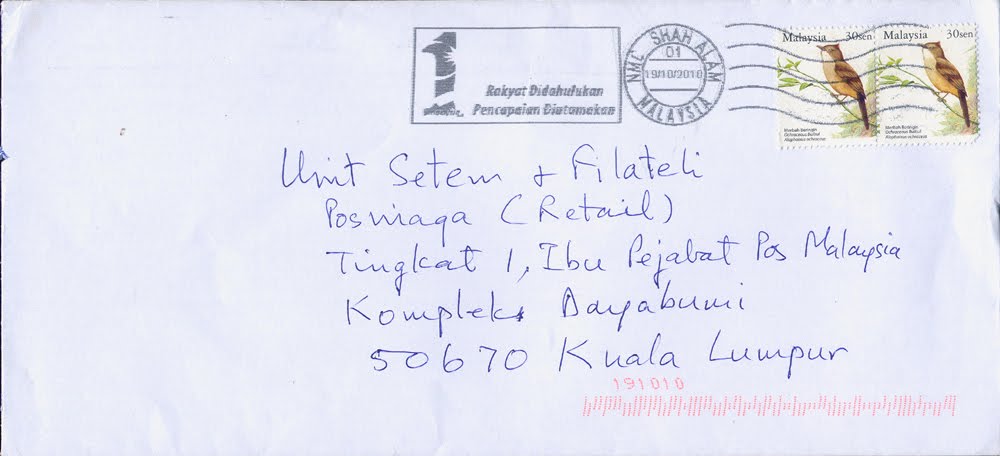 Rakyat Didahulukan
Pencapaian Diutamakan
NMC SHAH ALAM
01
19/10/2010
MALAYSIA
Malaysia 30sen
Merbah Beringin
Ochraceous Bulbul
Alophoixus ochraceus
Malaysia 30sen
Merbah Beringin
Ochraceous Bulbul
Alophoixus ochraceus
Unit Setem & Filateli
Posniaga (Retail)
Tingkat 1, Ibu Pejabat Pos Malaysia
Kompleks Dayabumi
50670 Kuala Lumpur
191010